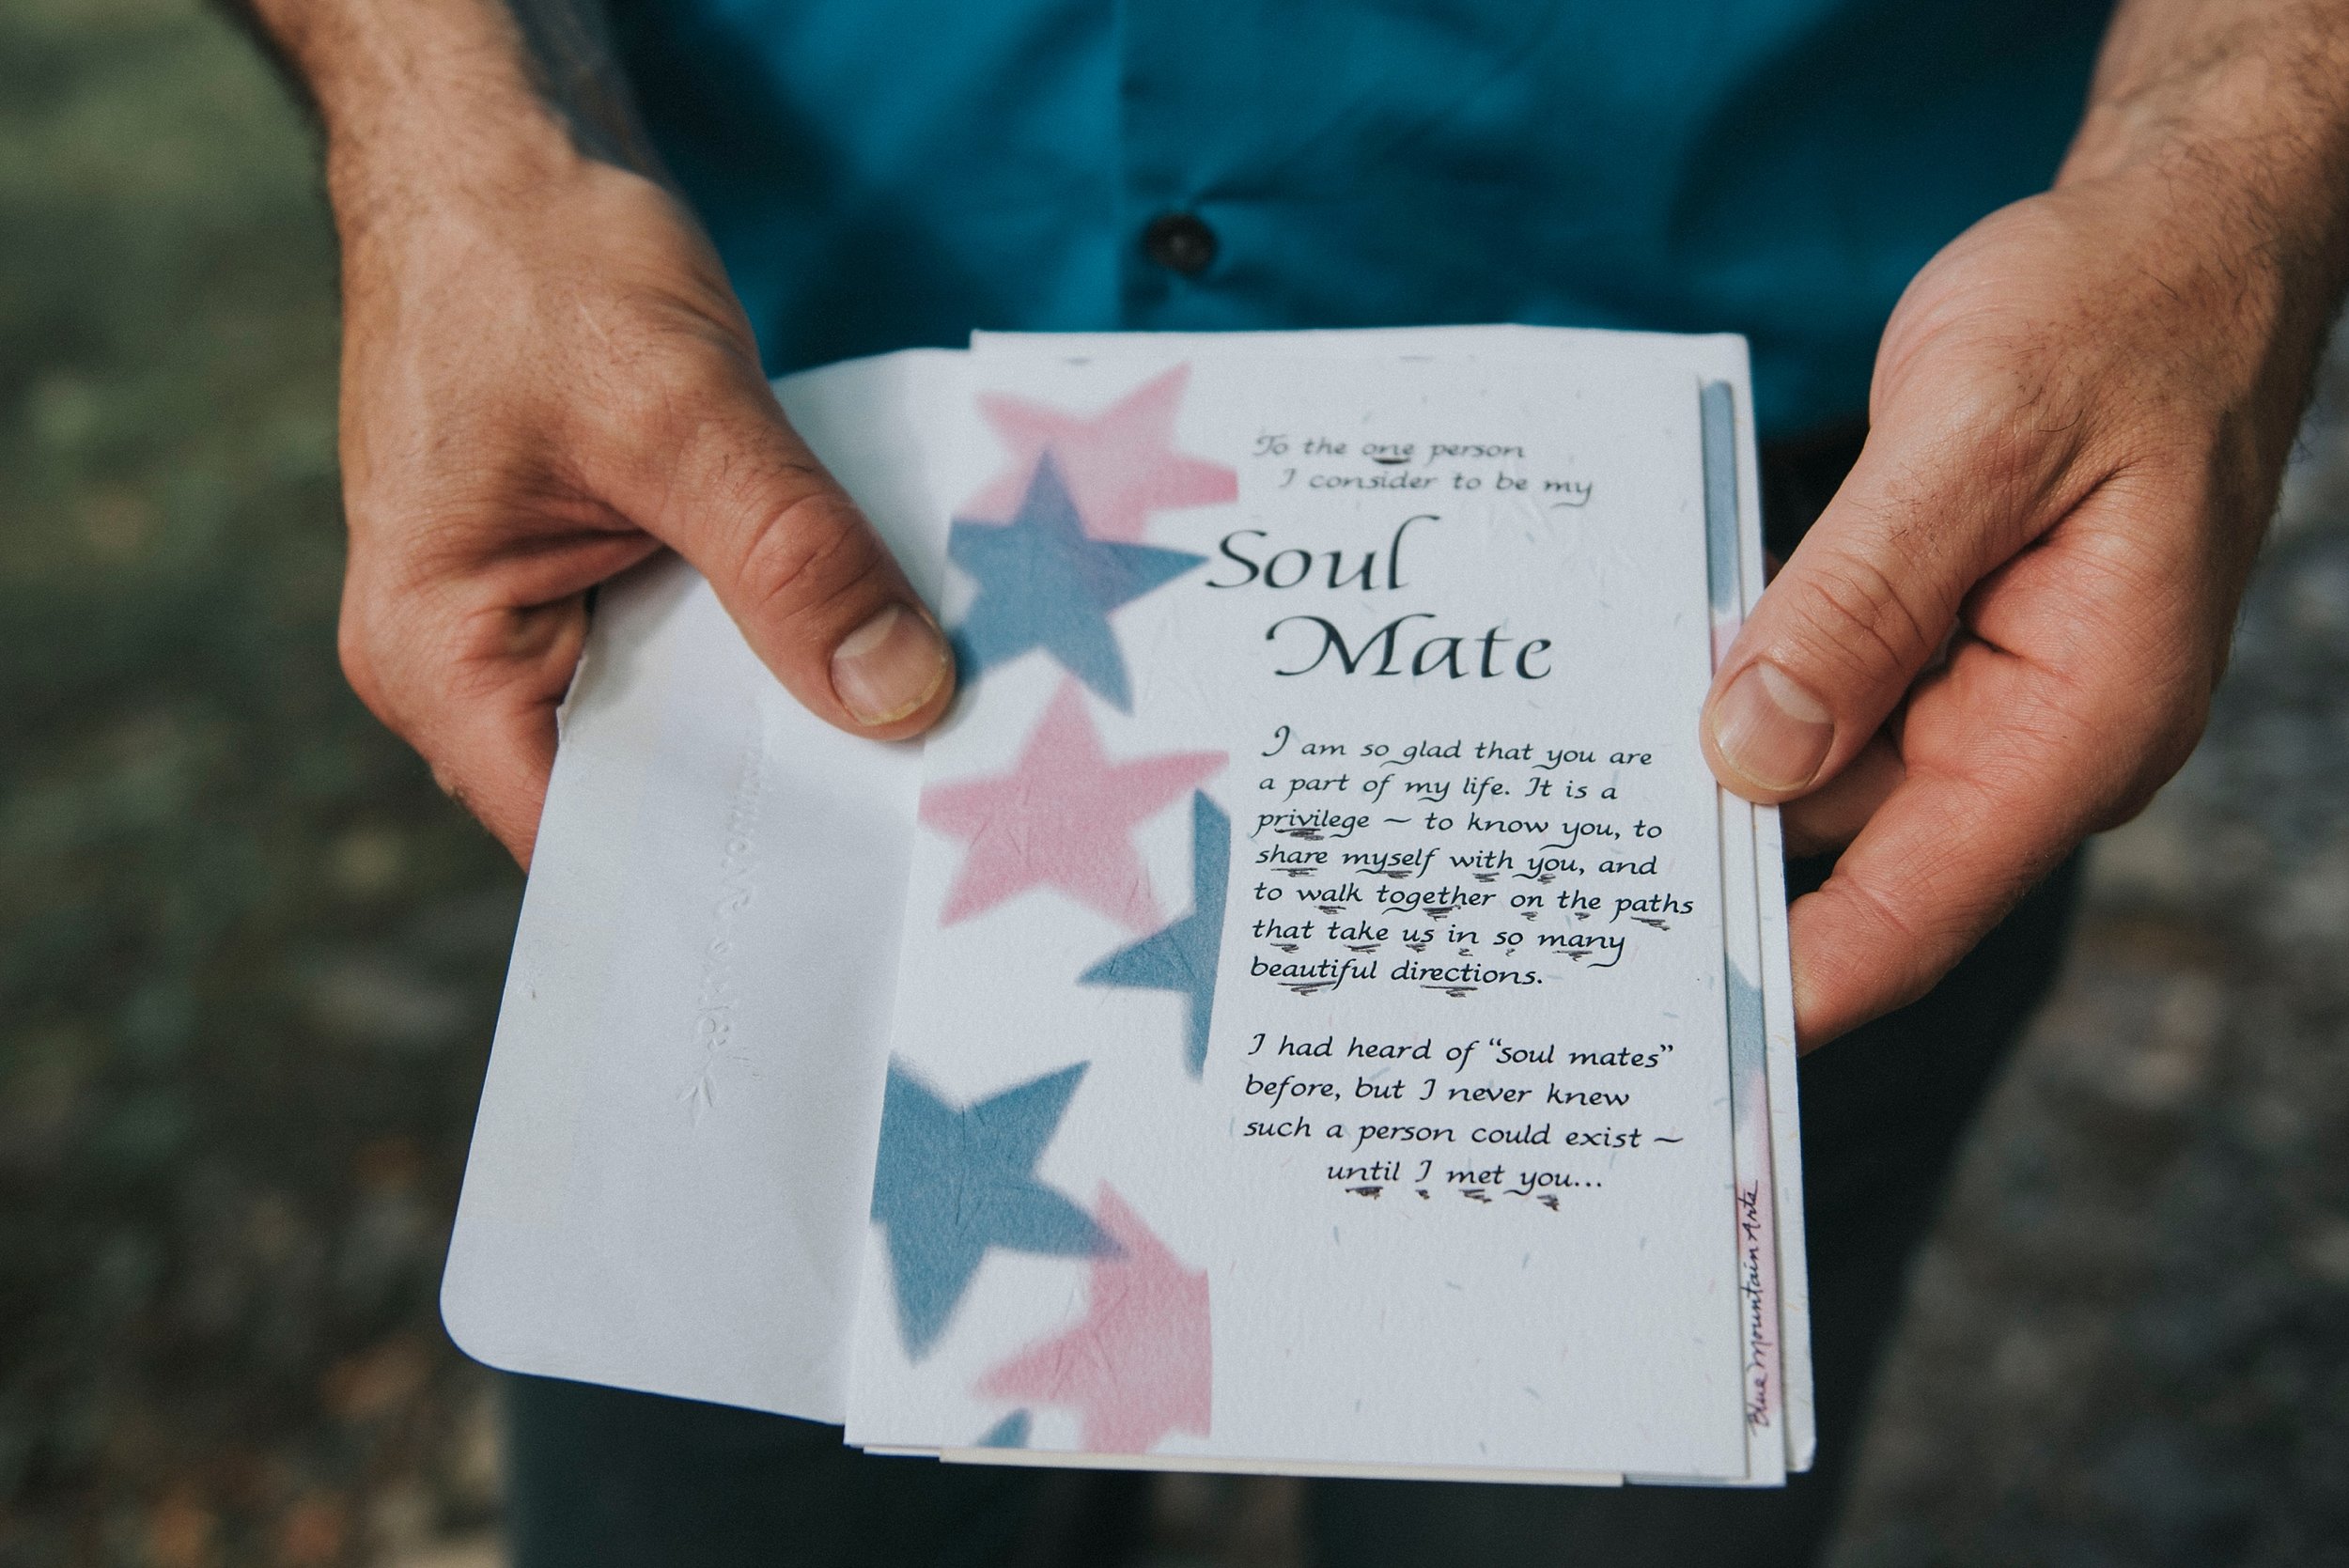 To the one person
I consider to be my
Soul
Mate
I am so glad that you are
a part of my life. It is a
privilege ~ to know you, to
share myself with you, and
to walk together on the paths
that take us in so many
beautiful directions.
I had heard of “soul mates”
before, but I never knew
such a person could exist ~
until I met you...
Blue Mountain Arts